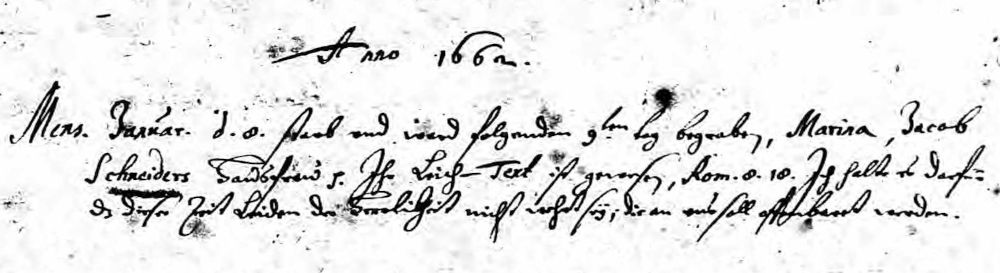 Anno 1662.
Mens. Januar. d. 8. starb und ward folgenden 9ten begraben, Marina, Jacob
Schneiders Hausfrau s. Ihr Leich-Text ist gewesen, Rom. 8. 18. Ich halte es darfür
dz dieser Zeit Leiden der Herrlichkeit nicht wehrt sey, die an uns soll offenbaret werden.